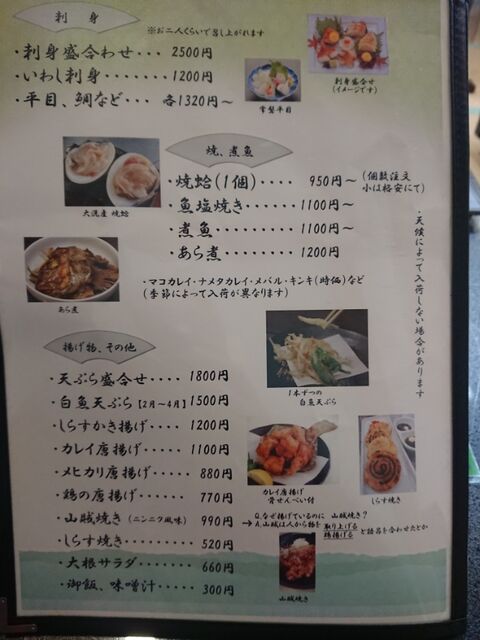 刺身
※お二人くらいで召し上がれます
・刺身盛合わせ・・・2500円
・いわし刺身・・・・1200円
・平目、鯛など・・・各1320円～
刺身盛合せ
(イメージです)
常磐平目
焼、煮魚
・焼蛤(1個)・・・・950円～(個数注文
小は格安にて)
・魚塩焼き・・・・1100円～
・煮魚・・・・・・1100円～
・あら煮・・・・・1200円
大洗産 焼蛤
あら煮
・マコカレイ・ナメタカレイ・メバル・キンキ(時価)など
(季節によって入荷が異なります)
・天候によって入荷しない場合があります
揚げ物、その他
・天ぷら盛合せ・・・・1800円
・白魚天ぷら【2月～4月】1500円
・しらすかき揚げ・・・1200円
・カレイ唐揚げ・・・・1100円
・メヒカリ唐揚げ・・・880円
・鶏の唐揚げ・・・・・770円
・山賊焼き(ニンニク風味)990円
・しらす焼き・・・・・520円
・大根サラダ・・・・・660円
・御飯、味噌汁・・・・300円
1本ずつの
白魚天ぷら
カレイ唐揚げ
骨せんべい付
しらす焼き
Q.なぜ揚げているのに 山賊焼き?
→A.山賊は人から物を 取り上げる
鶏揚げる と語呂を合わせたとか
山賊焼き